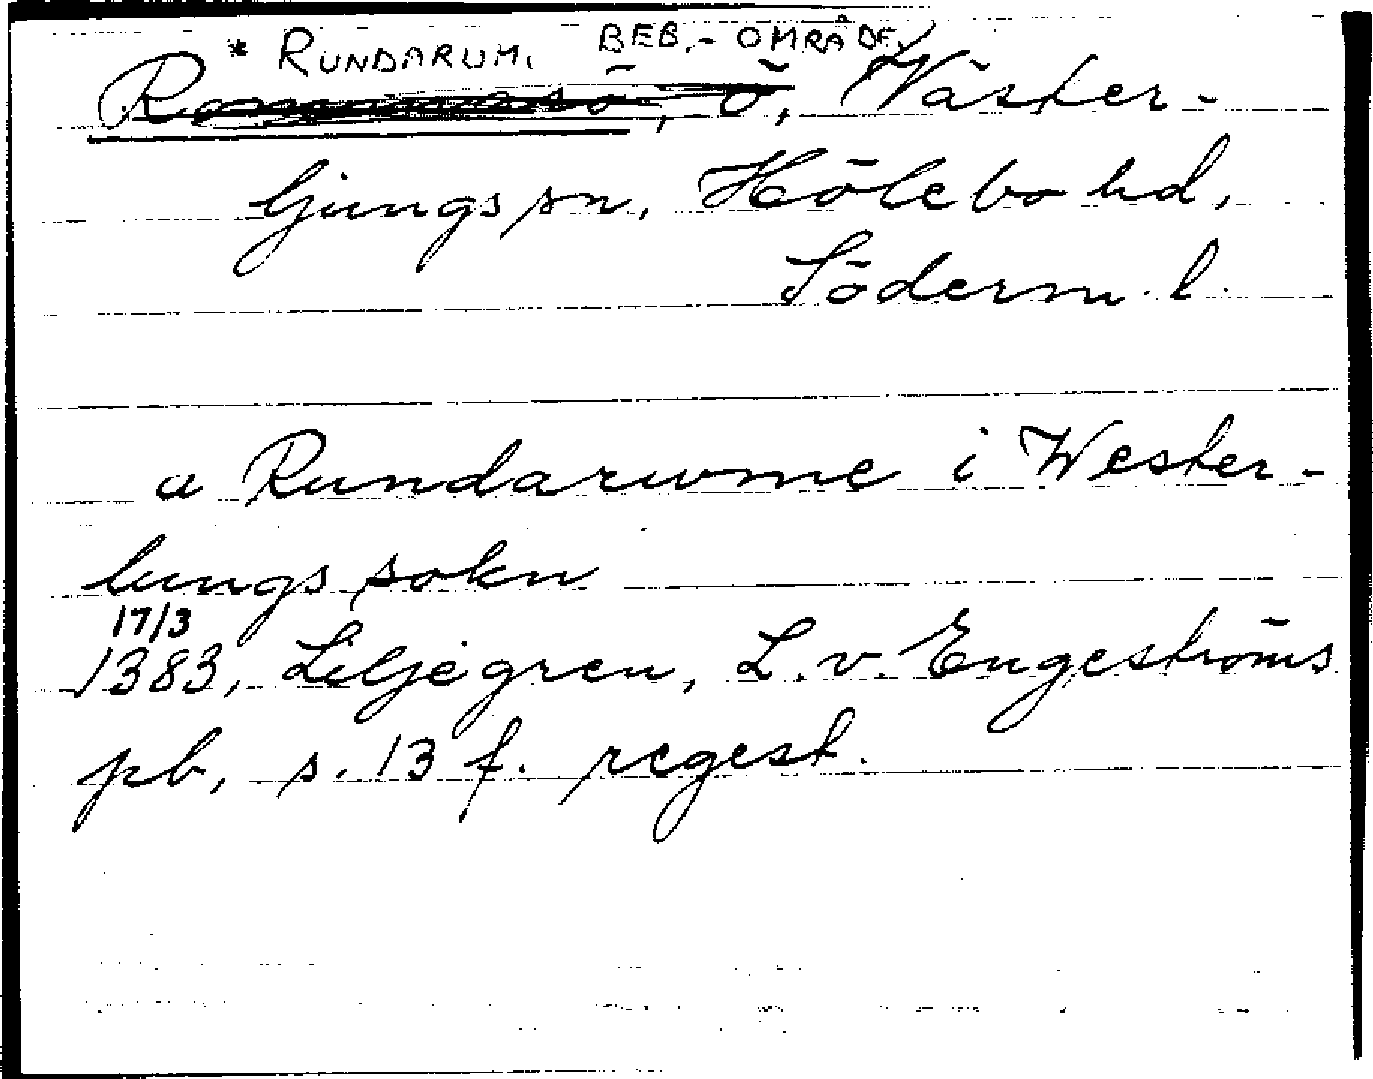 * RUNDARUM, BEB.-OMRÅDE,
ö, Väster-
ljungs sn, Hölebo hd,
Söderm. l.
a Rundarume i Wester-
lungs sokn
17/3
1383, Liljegren, L. v. Engeströms
pb, s. 13 f. regest.